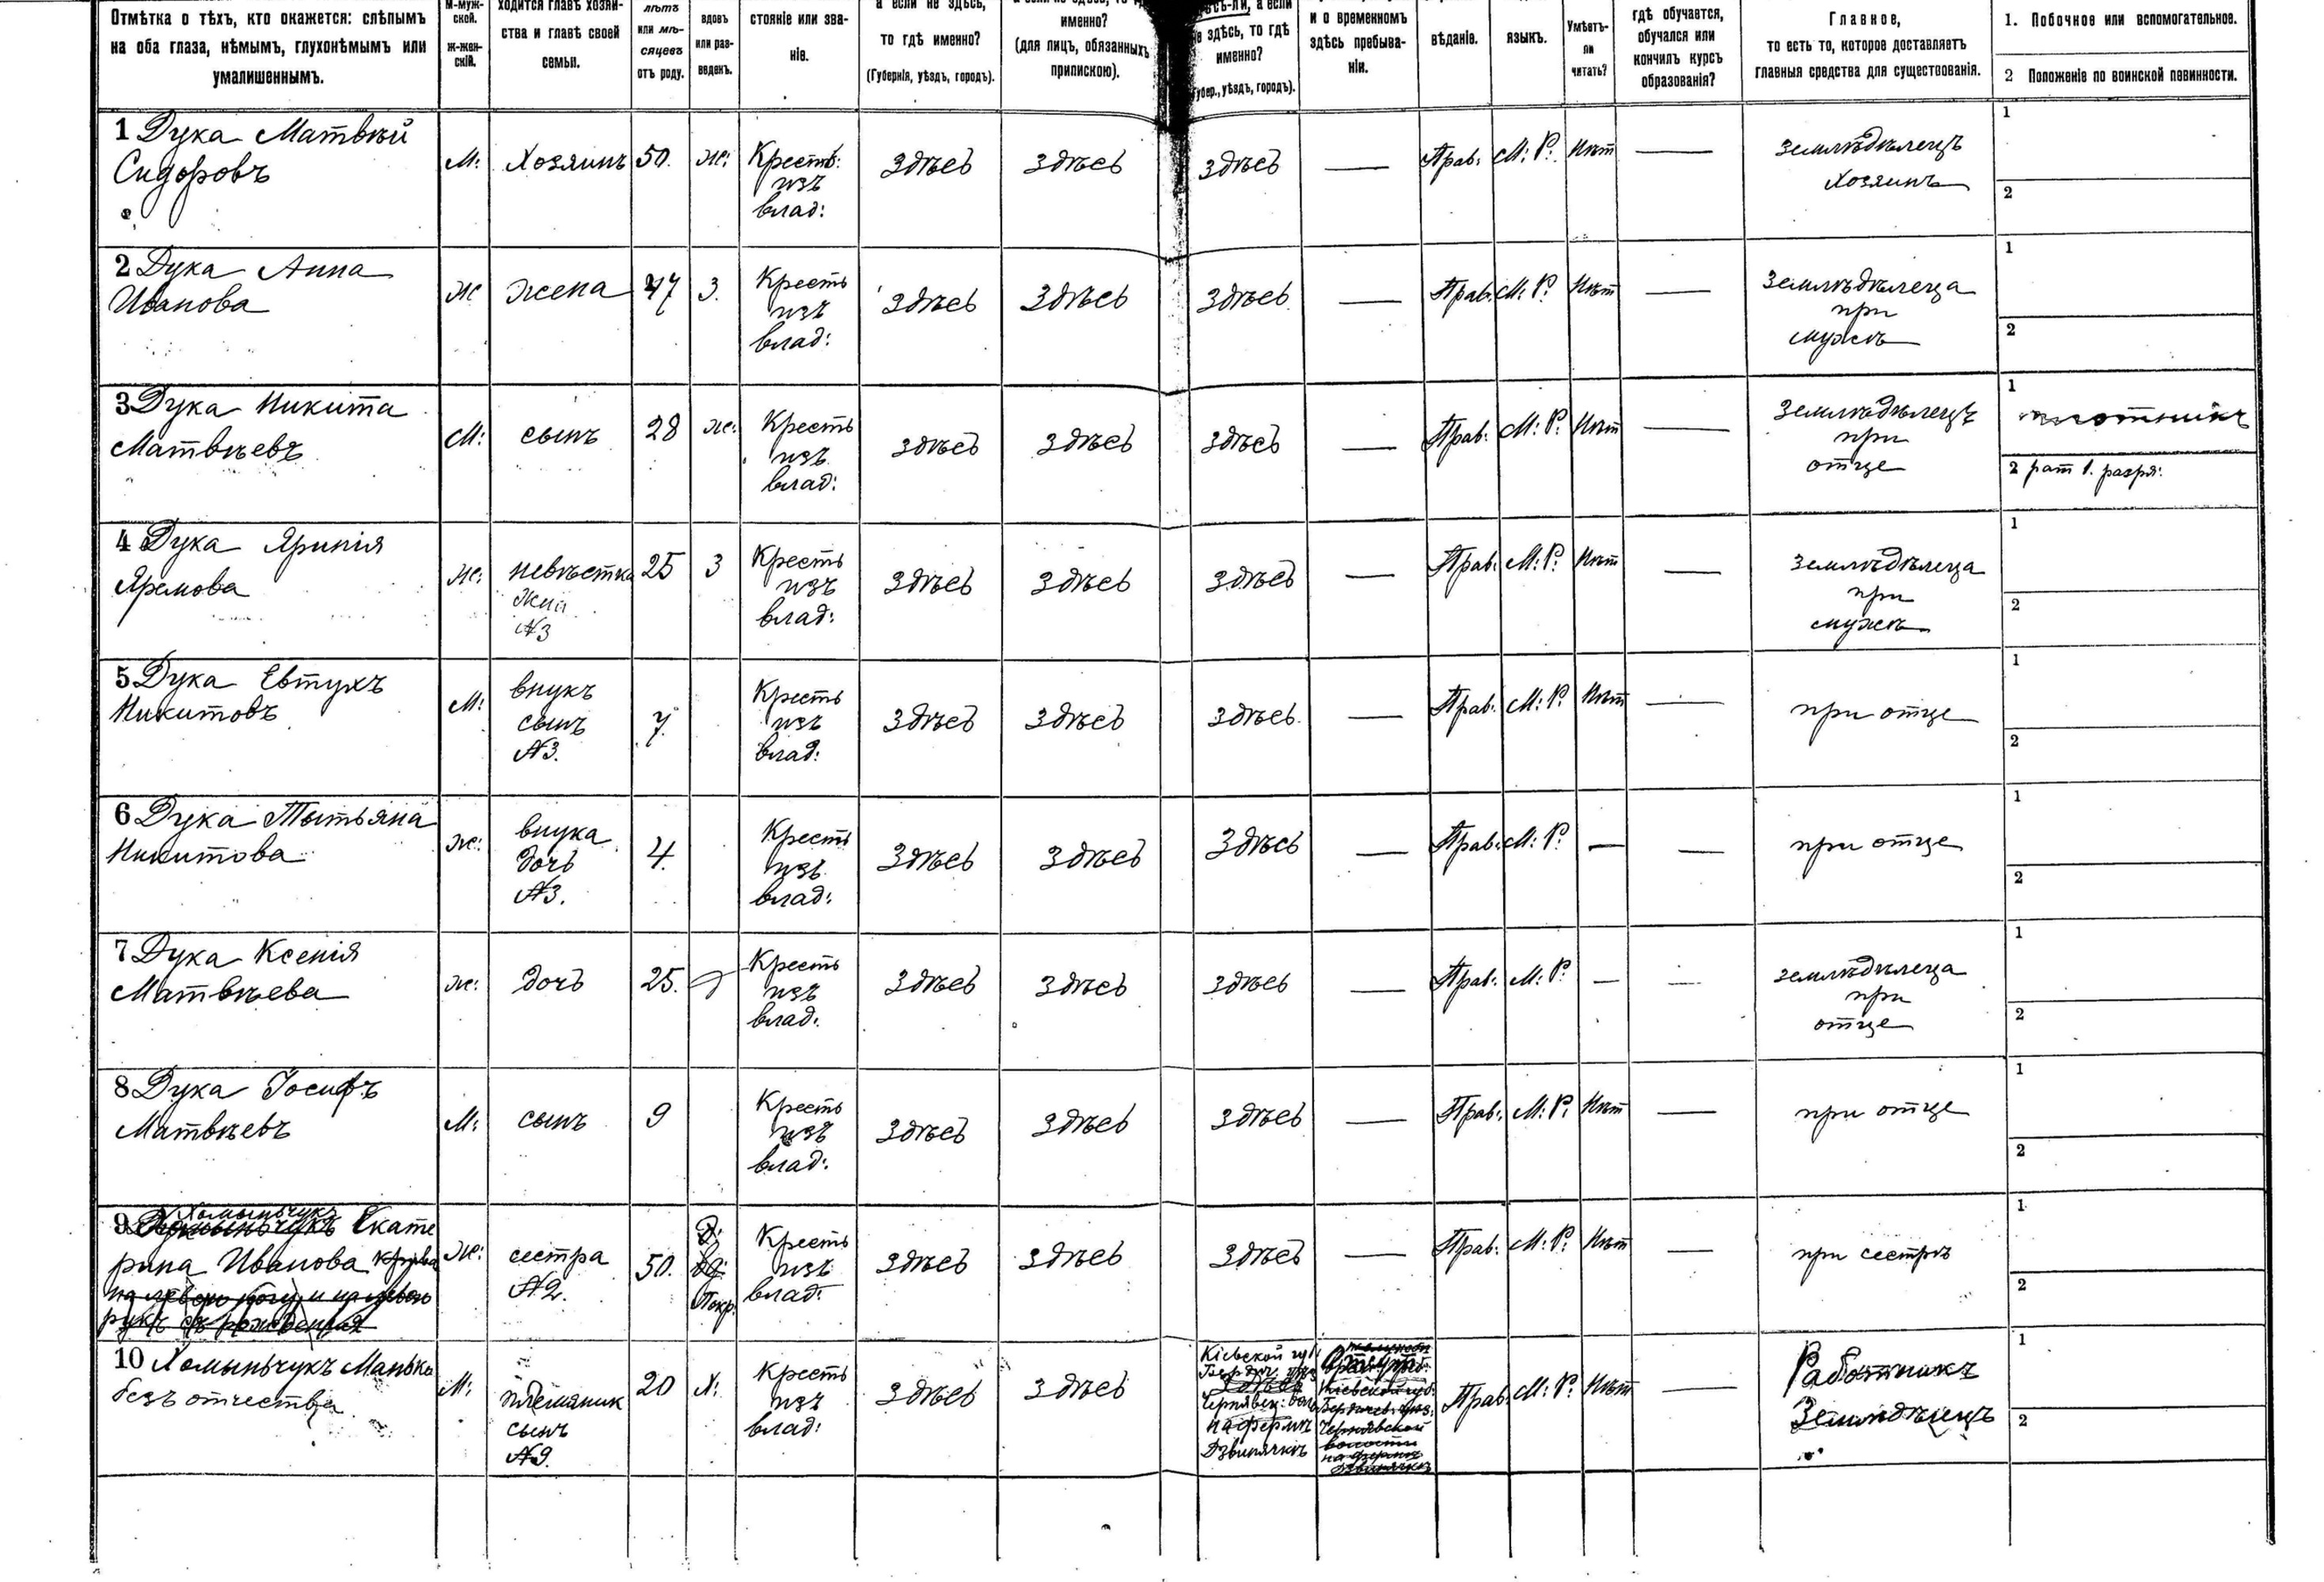 Отмѣтка о тѣхъ, кто окажется: слѣпымъ
на оба глаза, нѣмымъ, глухонѣмымъ или
умалишеннымъ.
М-муж-
ской.
ж-жен-
скій.
ходится главѣ хозяй-
ства и главѣ своей
семьи.
лѣтъ
или мѣ-
сяцевъ
отъ роду.
вдовъ
или раз-
веденъ.
стояніе или зва-
ніе.
а если не здѣсь,
то гдѣ именно?
(Губернія, уѣздъ, городъ).
именно?
(для лицъ, обязанныхъ
припискою).
а если
не здѣсь, то гдѣ
именно?
(Губер., уѣздъ, городъ).
и о временномъ
здѣсь пребыва-
ніи.
вѣданіе.
языкъ.
Умѣетъ-
ли
читать?
гдѣ обучается,
обучался или
кончилъ курсъ
образованія?
Главное,
то есть то, которое доставляетъ
главныя средства для существованія.
1. Побочное или вспомогательное.
2 Положеніе по воинской повинности.
1 Дука Матвѣй
Сидоровъ
М: Хозяинъ 50. же:
Кресть:
изъ
влад:
здѣсь здѣсь здѣсь — Прав: М: Р: Нѣт —
земледѣлецъ
хозяинъ
1
2
2 Дука Анна
Иванова
же жена 47 З.
Кресть
изъ
влад:
здѣсь здѣсь здѣсь — Прав: М: Р: Нѣт —
земледѣлеца
при
мужѣ
1
2
3 Дука Никита
Матвѣевъ
М: сынъ 28 же:
Кресть
изъ
влад:
здѣсь здѣсь здѣсь — Прав: М: Р: Нѣт —
земледѣлецъ
при
отце
1 плотникъ
2 рат 1. разря:
4 Дука Яринія
Яремова
же: невѣстка 25 З
жена
№3
Кресть
изъ
влад:
здѣсь здѣсь здѣсь — Прав: М: Р: Нѣт —
земледѣлеца
при
мужѣ
1
2
5 Дука Евтухъ
Никитовъ
М: внукъ
сынъ
№3.
7.
Кресть
изъ
влад:
здѣсь здѣсь здѣсь — Прав: М: Р: Нѣт —
при отце
1
2
6 Дука Тытьяна
Никитова
же: внука
дочь
№3.
4.
Кресть
изъ
влад:
здѣсь здѣсь здѣсь — Прав: М: Р: — —
при отце
1
2
7 Дука Ксенія
Матвѣева
же: дочь 25. д
Кресть
изъ
влад:
здѣсь здѣсь здѣсь — Прав: М: Р: — —
земледѣлеца
при
отце
1
2
8 Дука Іосифъ
Матвѣевъ
М: сынъ 9
Кресть
изъ
влад:
здѣсь здѣсь здѣсь — Прав: М: Р: Нѣт —
при отце
1
2
Хомынчукъ
9 Екате
рина Иванова
рукѣ съ рожденія
же: сестра
№2.
50.
Д:
вд:
Покр:
Кресть
изъ
влад:
здѣсь здѣсь здѣсь — Прав: М: Р: Нѣт —
при сестрѣ
1
2
10 Хомыньчукъ Манько
безъ отчества
М: племяник
сынъ
№9.
20 Х:
Кресть
изъ
влад:
здѣсь здѣсь
Кіевской губ
Бердич. уѣз
Чернявск: вол
на фермѣ
Дзвинячкѣ
Кіевской губ.
Бердичев: уѣз:
Чернявской
волости
на фермѣ
Прав: М: Р: Нѣт —
Работникъ
Земледѣлецъ
1
2